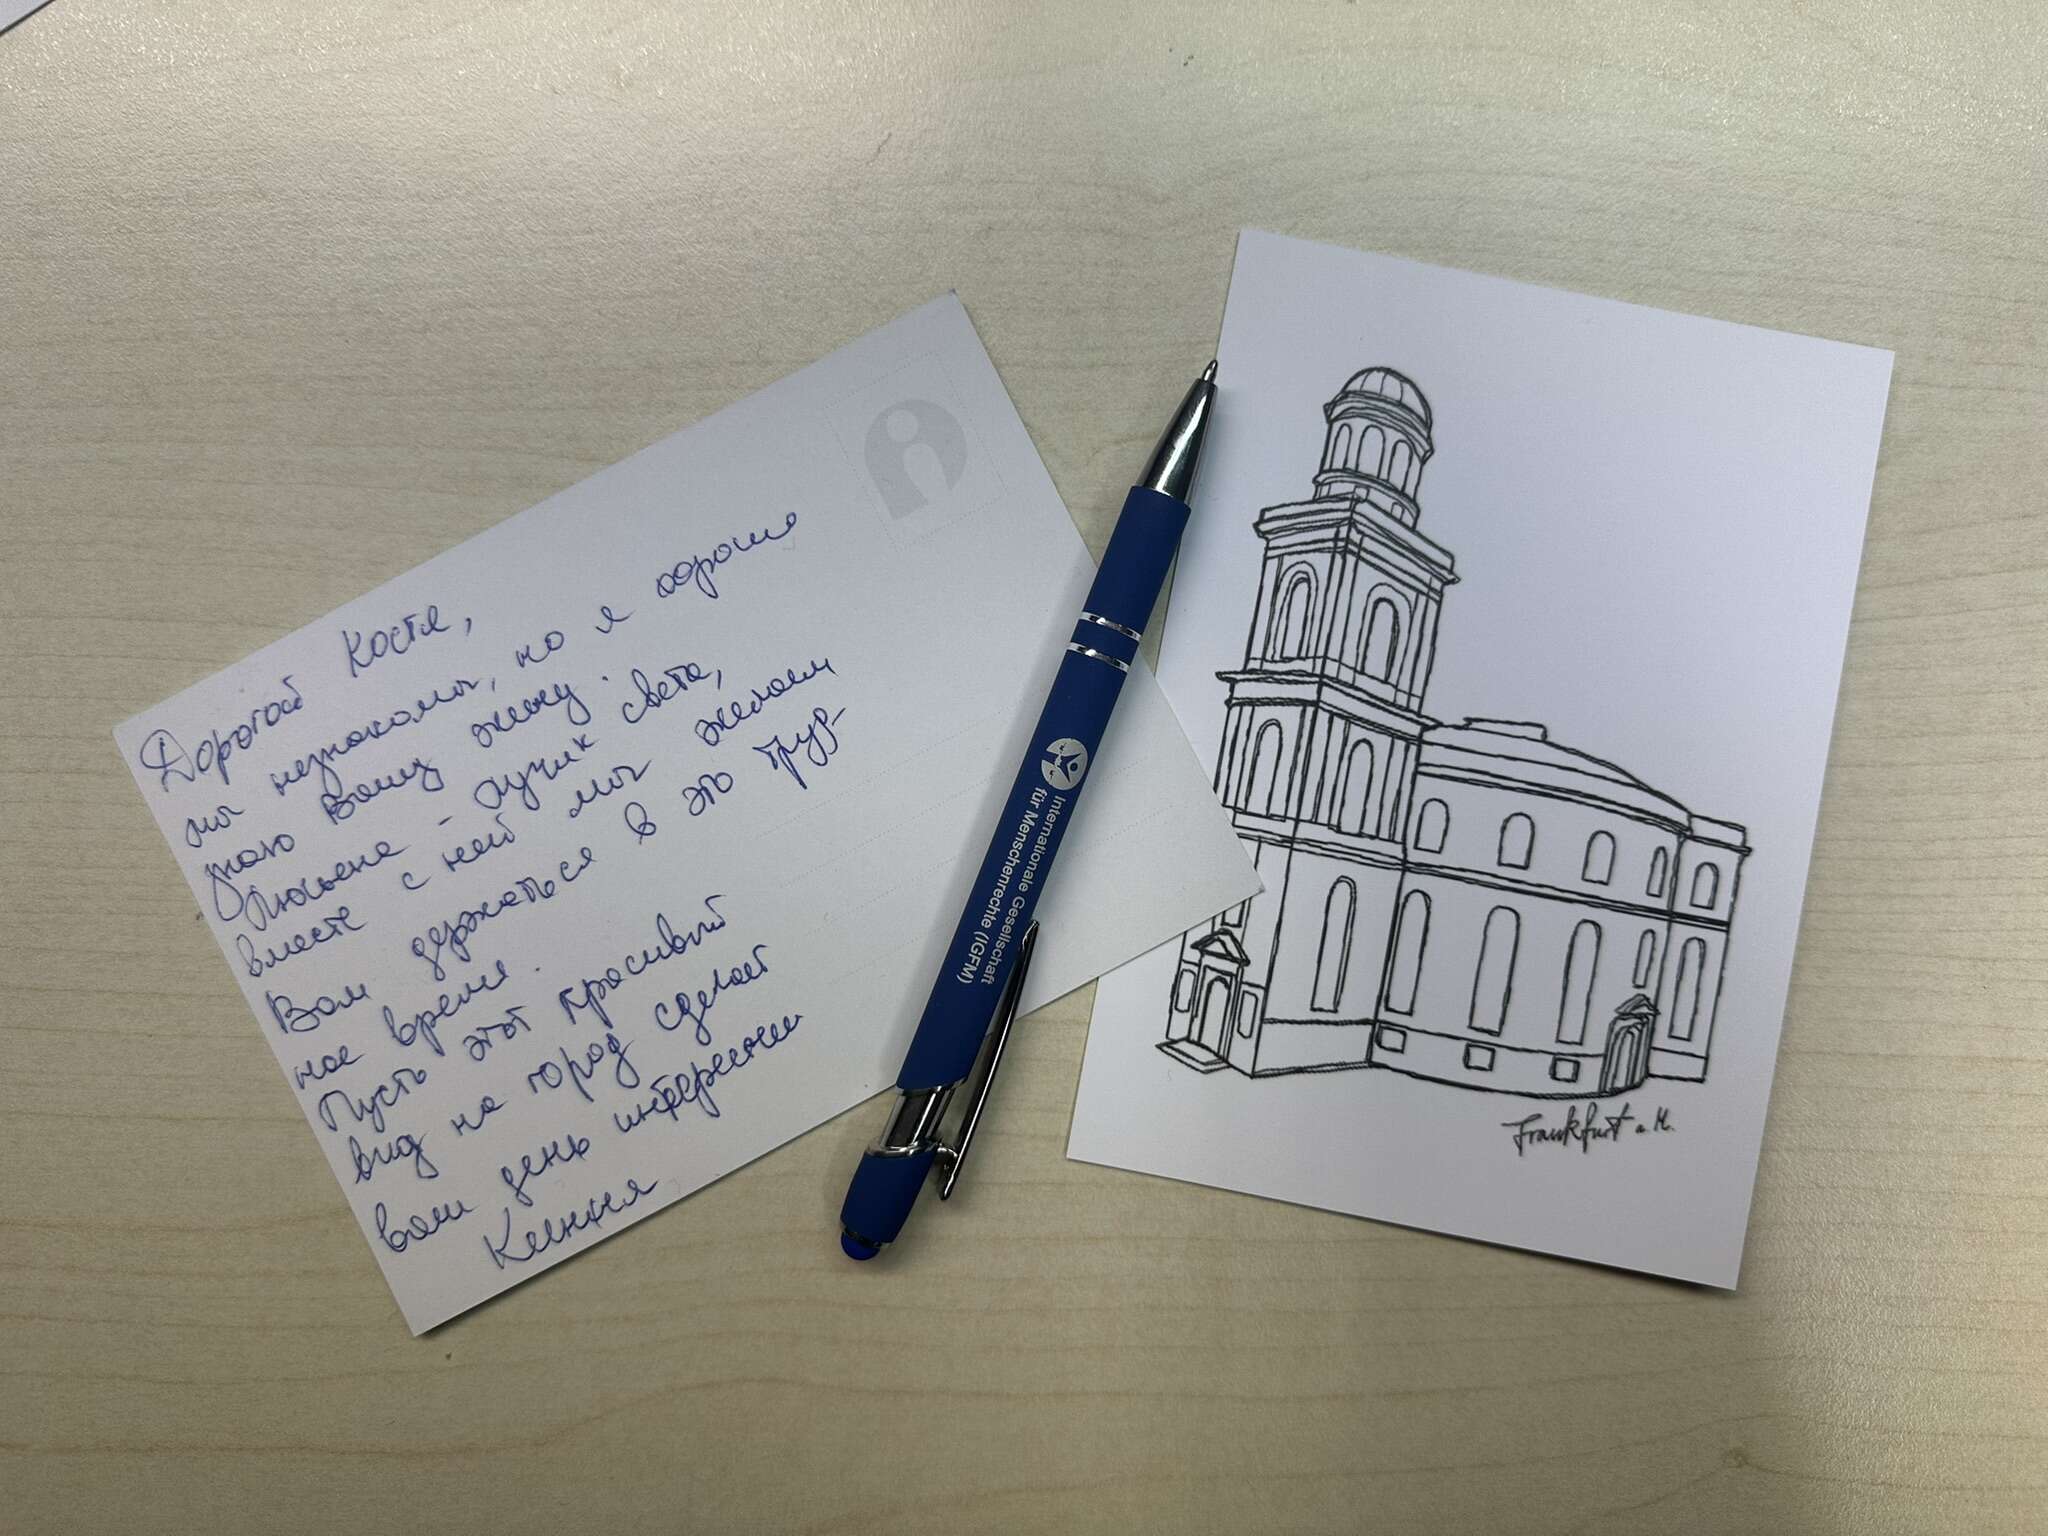 Дорогой Костя,
мы незнакомы, но я хорошо
знаю Вашу жену.
Татьяна - лучик света,
вместе с ней мы желаем
Вам держаться в это труд-
ное время.
Пусть этот красивый
вид на город сделает
ваш день интересней
Ксения
Internationale Gesellschaft
für Menschenrechte (IGFM)
Frankfurt a. M.